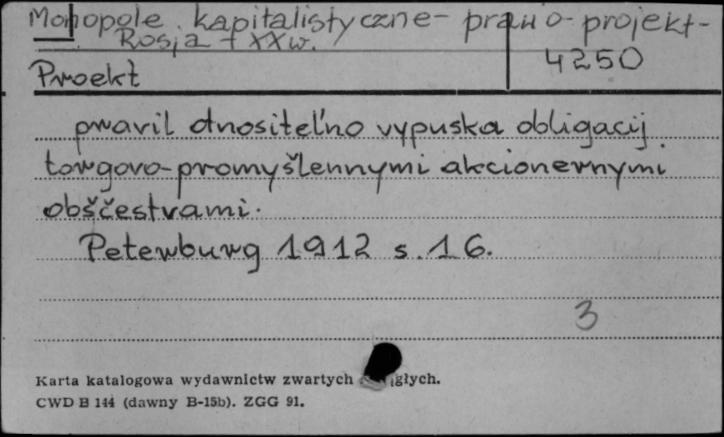 Monopole kapitalistyczne - prawo - projekt -
Rosja + XX w.
4250
Proekt
pravil otnositel'no vypuska obligacij
torgovo-promyšlennymi akcionernymi
obščestvami.
Peterburg 1912 s. 16.
3
Karta katalogowa wydawnictw zwartych
CWD B 144 (dawny B-15b). ZGG 91.